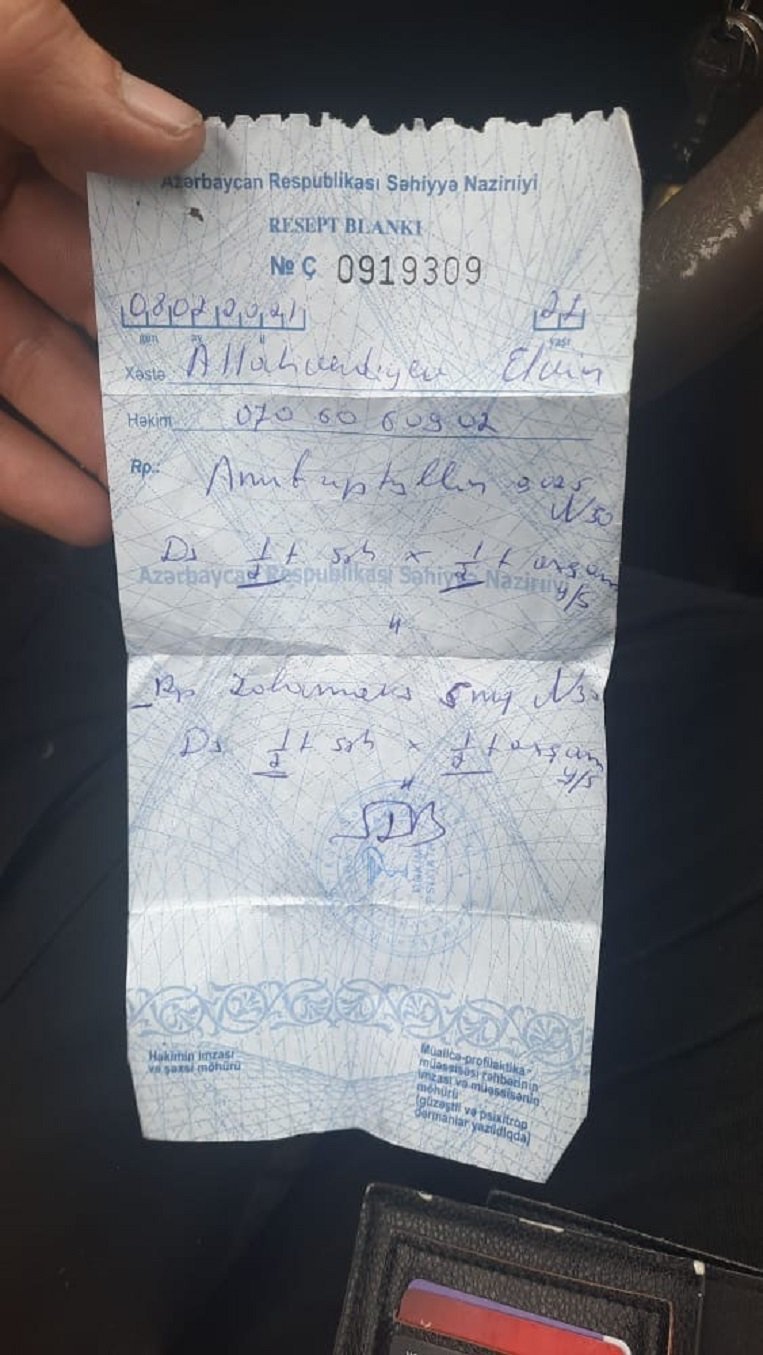 Azərbaycan Respublikası Səhiyyə Nazirliyi
RESEPT BLANKI
№ Ç 0919309
08022021 21
gün ay il yaşı
Xəstə Allahverdiyev Elvin
Həkim 070 60 60902
Rp.: 0,025
N50
Ds 1/2 t səh x 1/2 t axşam
y/s
Azərbaycan Respublikası Səhiyyə Nazirliyi
Rp 5 mg N30
Ds 1/2 t səh x 1/2 t axşam
y/s
Həkimin imzası
və şəxsi möhürü
Müalicə-profilaktika
müəssisəsi rəhbərinin
imzası və müəssisənin
möhürü
(güzəştli və psixitrop
dərmanlar yazıldıqda)